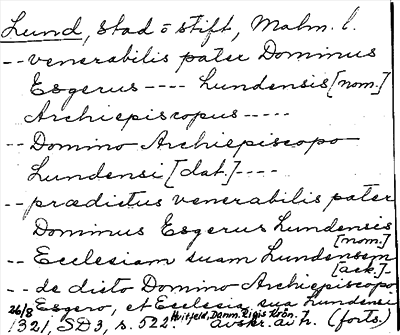 Lund, stad o stift, Malm. l.
-- venerabilis pater Dominus
Esgerus ---- Lundensis [nom.]
Archiepiscopus -----
-- Domino Archiepiscopo
Lundensi [dat.] ----
-- prædictus venerabilis pater
Dominus Esgerus Lundensis
[nom.]
-- Ecclesiam suam Lundensem
[ack.] -
-- de dicto Domino Archiepiscopo
Esgero, et Ecclesia sua Lundensi
26/8 Hvitfeld, Danm. Rigis Krön.
1321, SD3, s. 522. avskr. av h. (forts.)